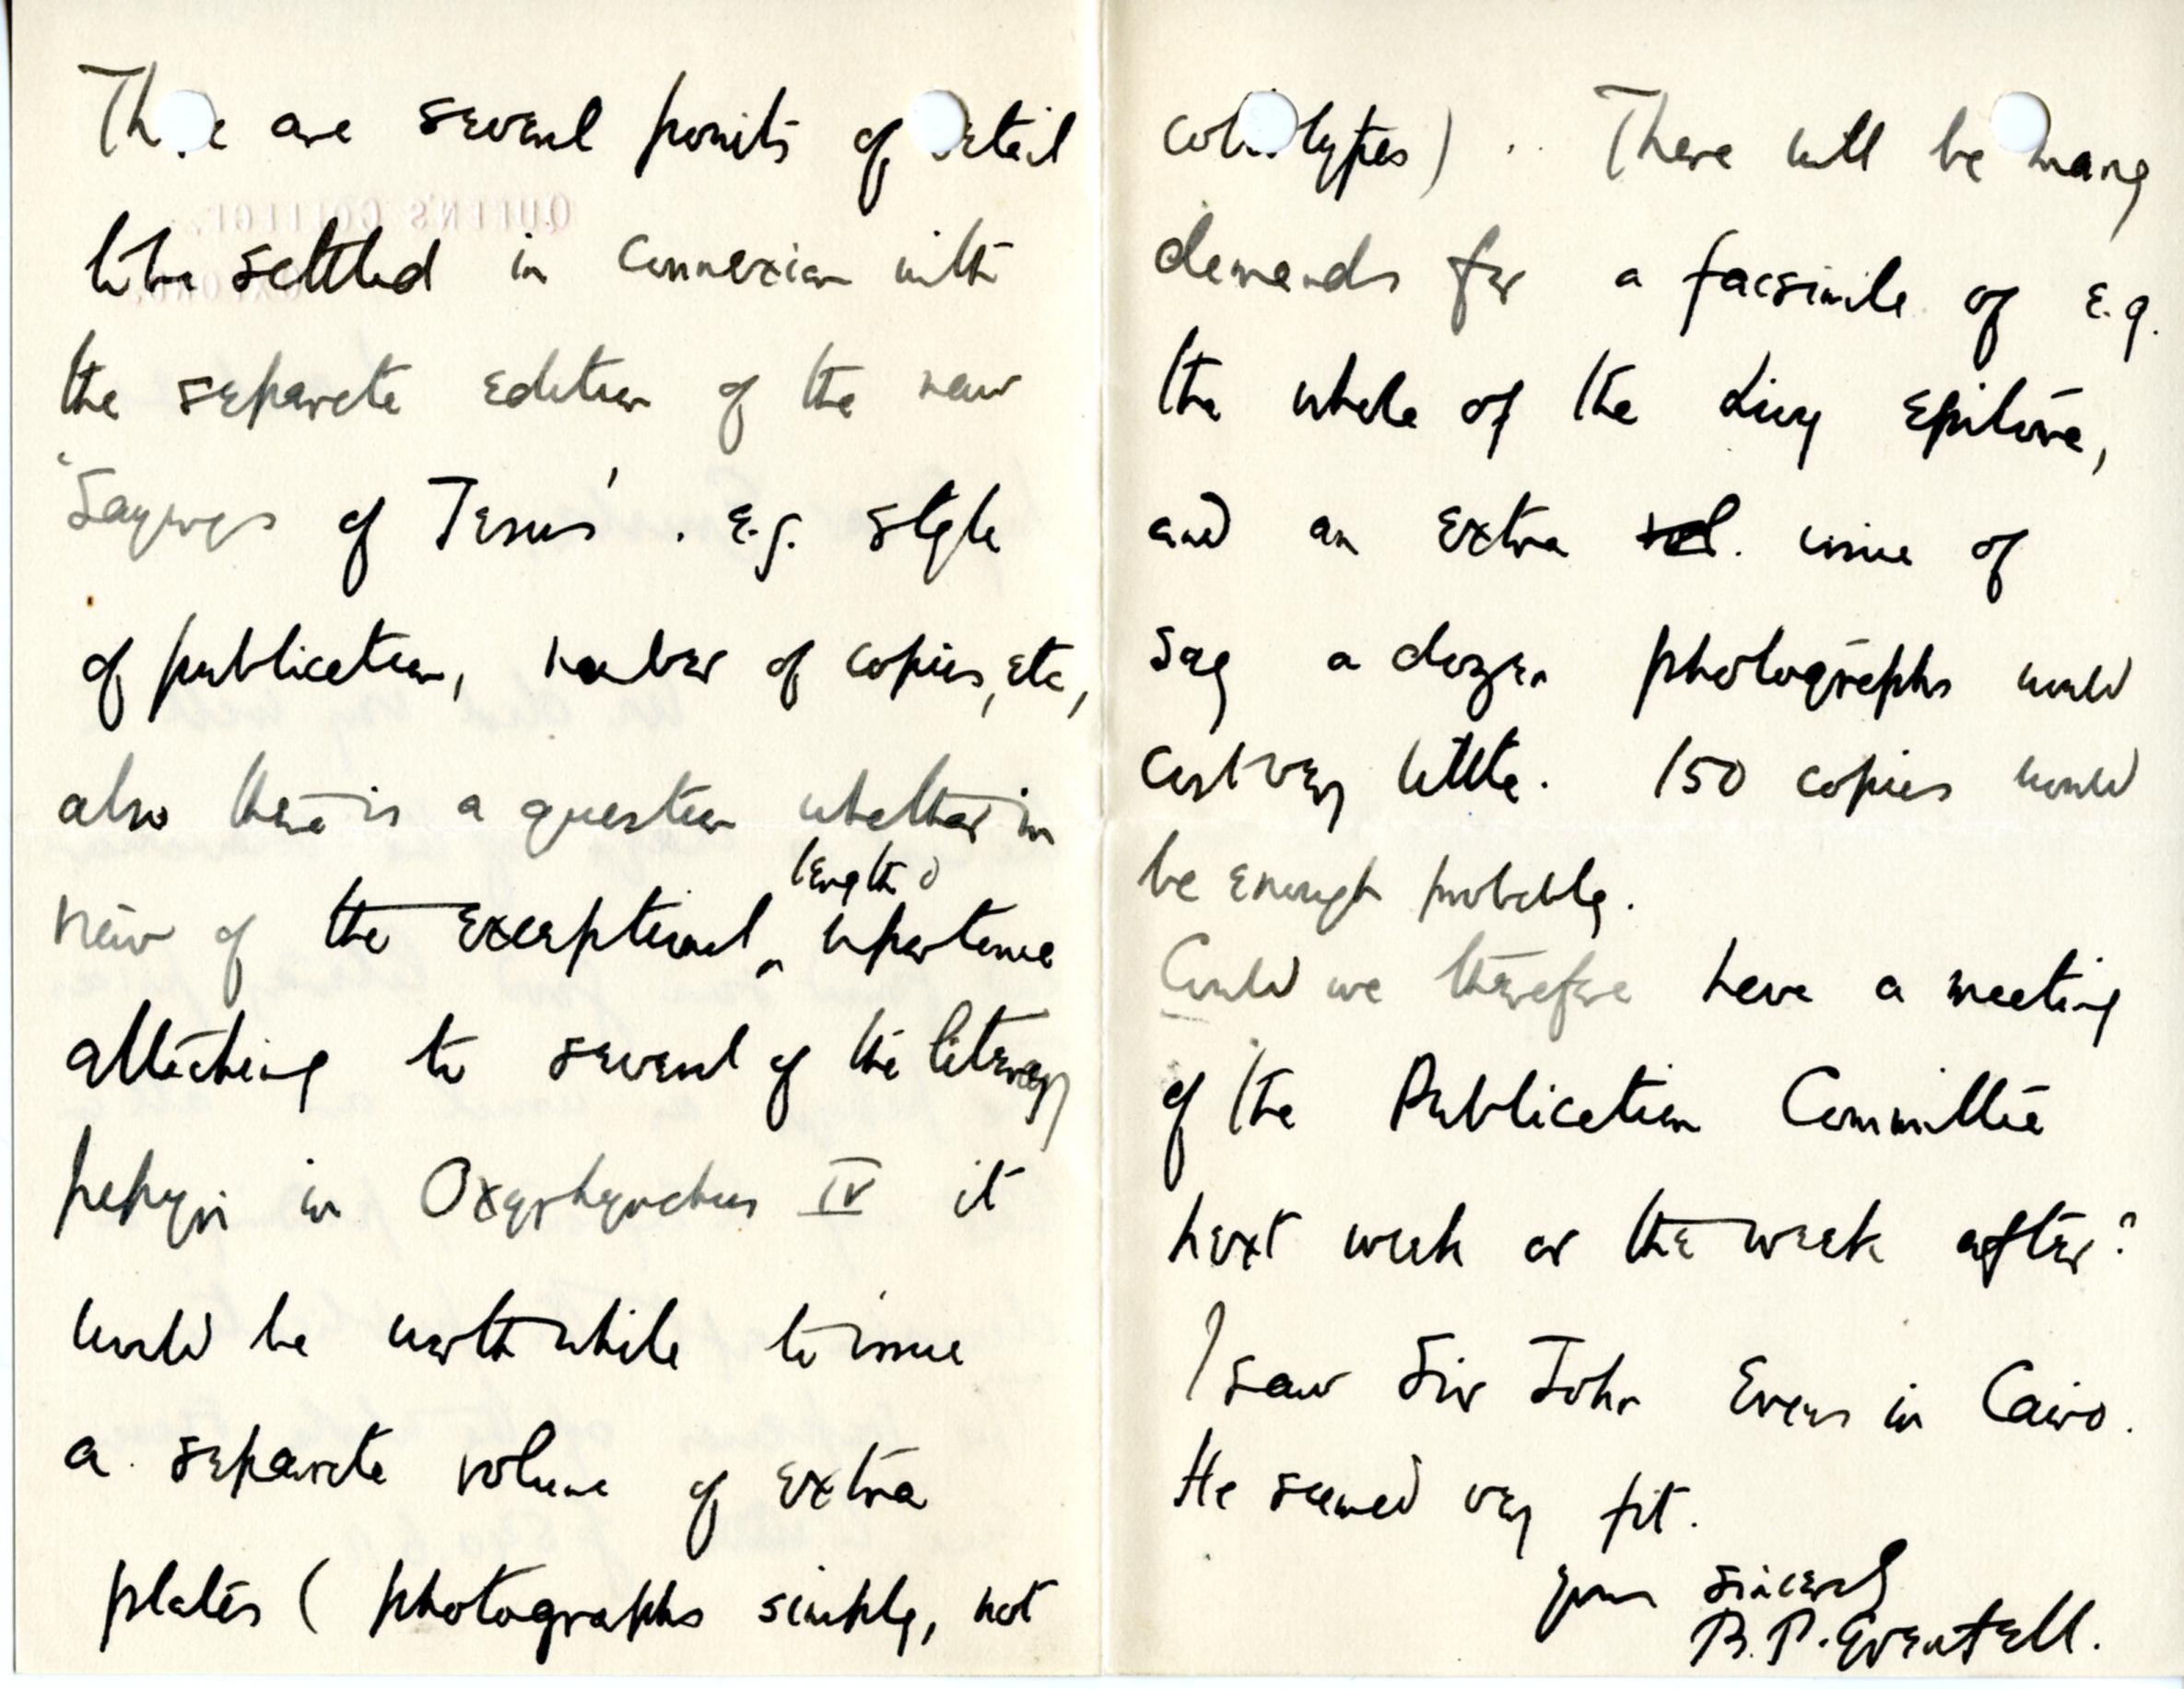 There are several points of detail
to be settled in connexion with
the separate edition of the new
'Sayings of Jesus'. e.g. style
of publication, number of copies, etc,
also there is a question whether in
view of the exceptional length & importance
attaching to several of the literary
papyri in Oxyrhynchus IV it
would be worth while to issue
a separate volume of extra
plates ( photographs simply, not
collotypes) . There will be many
demands for a facsimile of e.g.
the whole of the Livy epitome,
and an extra vol. issue of
say a dozen photographs would
cost very little. 150 copies would
be enough probably.
Could we therefore have a meeting
of the Publication Committee
next week or the week after?
I saw Sir John Evans in Cairo.
He seemed very fit.
yours sincerely
B. P. Grenfell.
QUEEN'S COLLEGE,
OXFORD.